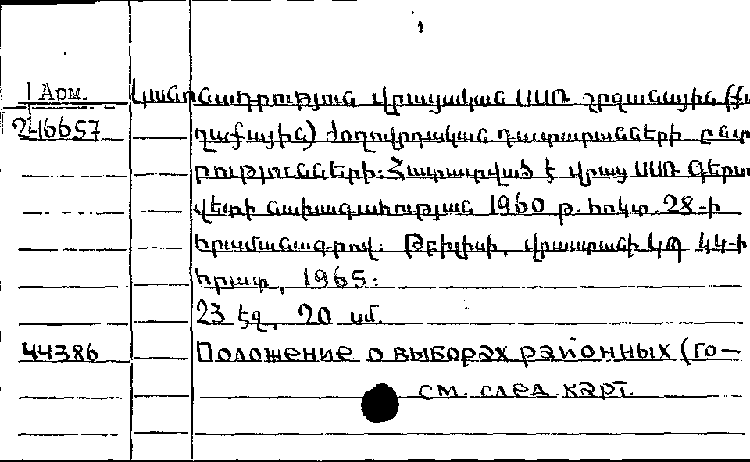 1
1 Арм.
Կանոնադրության վրացական ՍՍՌ շրջանային (քա
2-16657
ղաքային) ժողովրդական դատարանների ընտ
րությունների: Հաստատված է վրաց ՍՍՌ Գերա
վետի նախագահության 1960 թ. հոկտ. 28-ի
հրամանագրով: Թբիլիսի, վրաստանի ԿՊ ԿԿ-ի
հրատ., 1965:
23 էջ, 20 սմ.
44386
Положение о выборах районных (го-
см. след. карт.